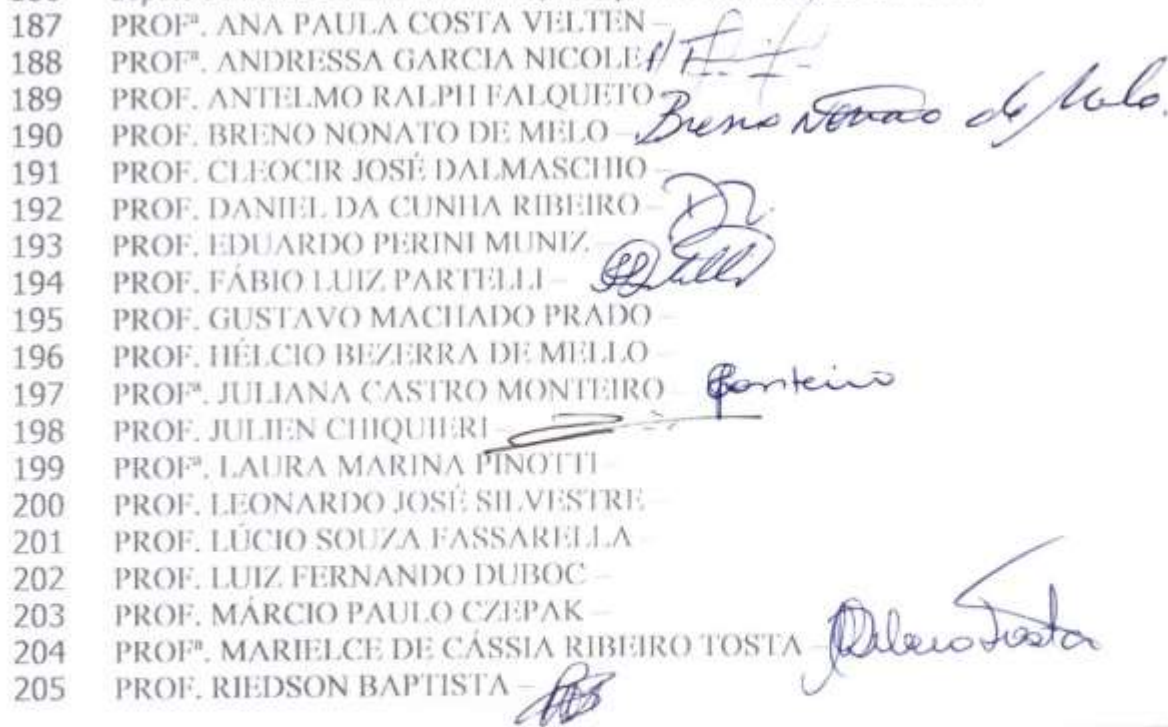 187 PROFª. ANA PAULA COSTA VELTEN –
188 PROFª. ANDRESSA GARCIA NICOLE
189 PROF. ANTELMO RALPH FALQUETO –
190 PROF. BRENO NONATO DE MELO – Breno Nonato de Melo.
191 PROF. CLEOCIR JOSÉ DALMASCHIO –
192 PROF. DANIEL DA CUNHA RIBEIRO –
193 PROF. EDUARDO PERINI MUNIZ –
194 PROF. FÁBIO LUIZ PARTELLI –
195 PROF. GUSTAVO MACHADO PRADO –
196 PROF. HÉLCIO BEZERRA DE MELLO –
197 PROFª. JULIANA CASTRO MONTEIRO
198 PROF. JULIEN CHIQUIERI –
199 PROFª. LAURA MARINA PINOTTI –
200 PROF. LEONARDO JOSÉ SILVESTRE –
201 PROF. LÚCIO SOUZA FASSARELLA –
202 PROF. LUIZ FERNANDO DUBOC –
203 PROF. MÁRCIO PAULO CZEPAK –
204 PROFª. MARIELCE DE CÁSSIA RIBEIRO TOSTA – Tosta
205 PROF. RIEDSON BAPTISTA –